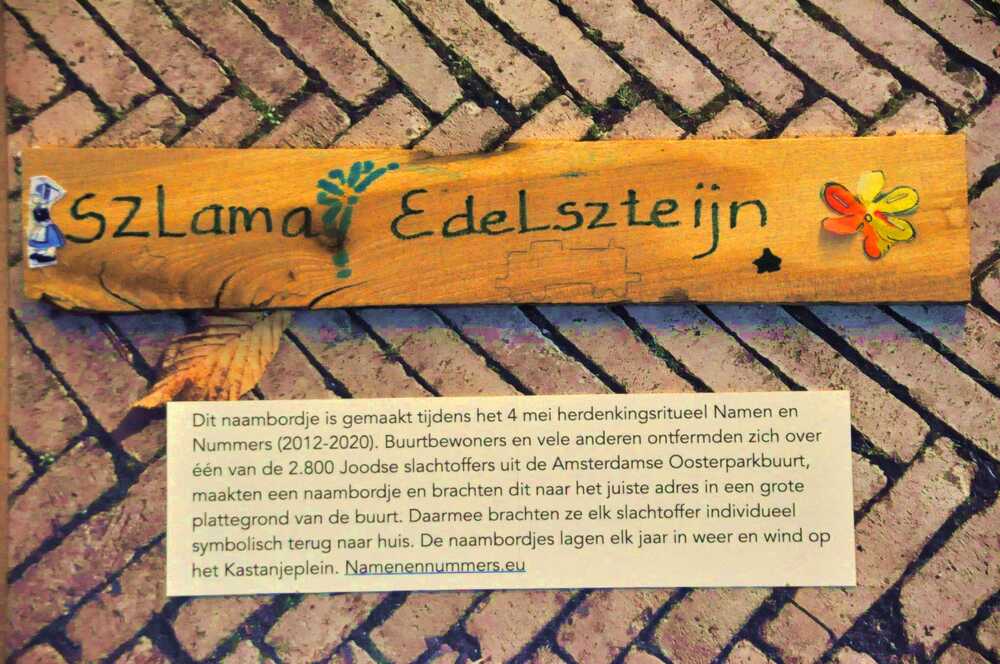 SZLama EdeLszteijn
Dit naambordje is gemaakt tijdens het 4 mei herdenkingsritueel Namen en
Nummers (2012-2020). Buurtbewoners en vele anderen ontfermden zich over
één van de 2.800 Joodse slachtoffers uit de Amsterdamse Oosterparkbuurt,
maakten een naambordje en brachten dit naar het juiste adres in een grote
plattegrond van de buurt. Daarmee brachten ze elk slachtoffer individueel
symbolisch terug naar huis. De naambordjes lagen elk jaar in weer en wind op
het Kastanjeplein. Namenennummers.eu